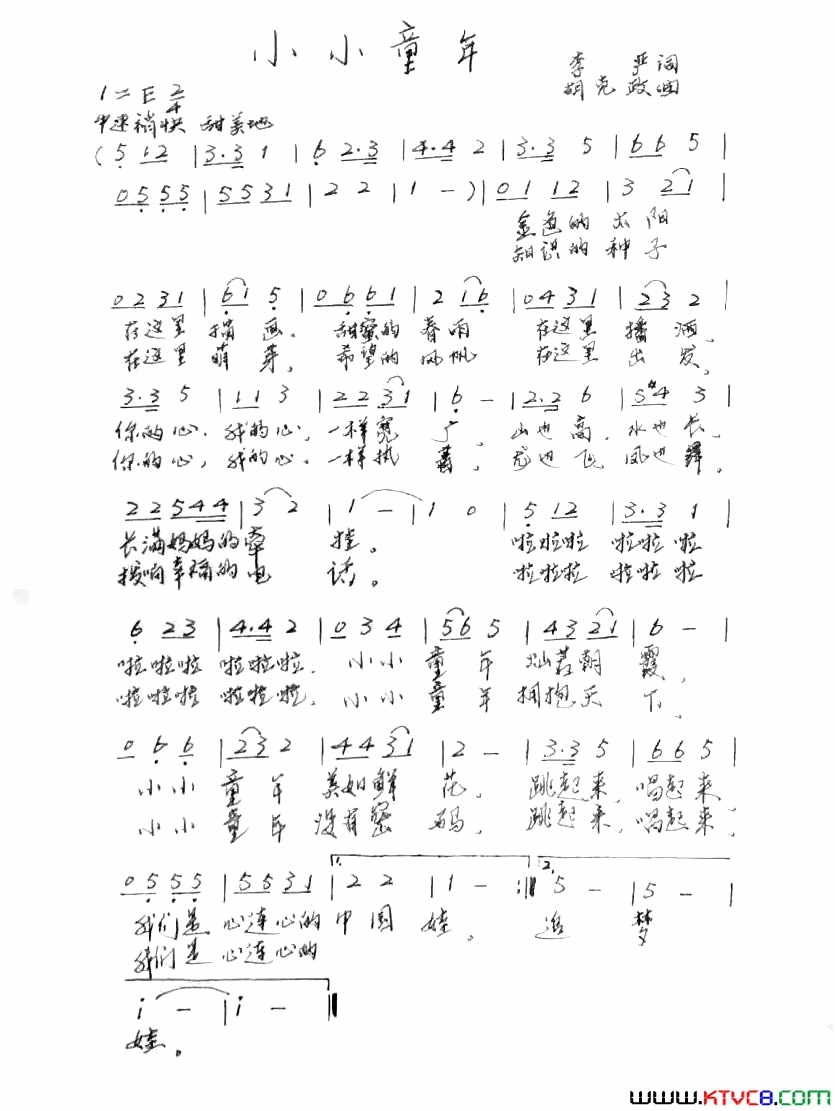 小小童年
李严词
1=E 2/4
胡克政曲
中速稍快 甜美地
(5 12 |3·3 1 |6 2·3 |4·4 2 |3·3 5 |66 5 |
05 55 |55 31 |2 2 |1 - )|01 12 |3 21 |
金色的太阳
知识的种子
02 31 |61 5 |06 61 |2 16 |04 31 |23 2 |
在这里描画,甜蜜的春雨在这里播洒,
在这里萌芽,希望的风帆在这里出发,
3·3 5 |11 3 |22 31 |6 - |2·2 6 |5#4 3 |
你的心,我的心,一样宽广,山也高,水也长,
你的心,我的心,一样执著,龙也飞,凤也舞,
22 544 |3 2 |1 - |1 0 |5 12 |3·3 1 |
长满妈妈的牵挂。啦啦啦啦啦啦
拨响幸福的电话。啦啦啦啦啦啦
6 23 |4·4 2 |03 4 |56 5 |43 21 |6 - |
啦啦啦啦啦啦,小小童年灿若朝霞,
啦啦啦啦啦啦,小小童年拥抱天下,
06 6 |23 2 |44 31 |2 - |3·3 5 |66 5 |
小小童年美如鲜花,跳起来,唱起来,
小小童年没有密码,跳起来,唱起来,
1. 2.
05 55 |55 31 |2 2 |1 - :||5 - |5 - |
我们是心连心的中国娃。追梦
我们是心连心的
i - |i - ||
娃。
www.KTVC8.com